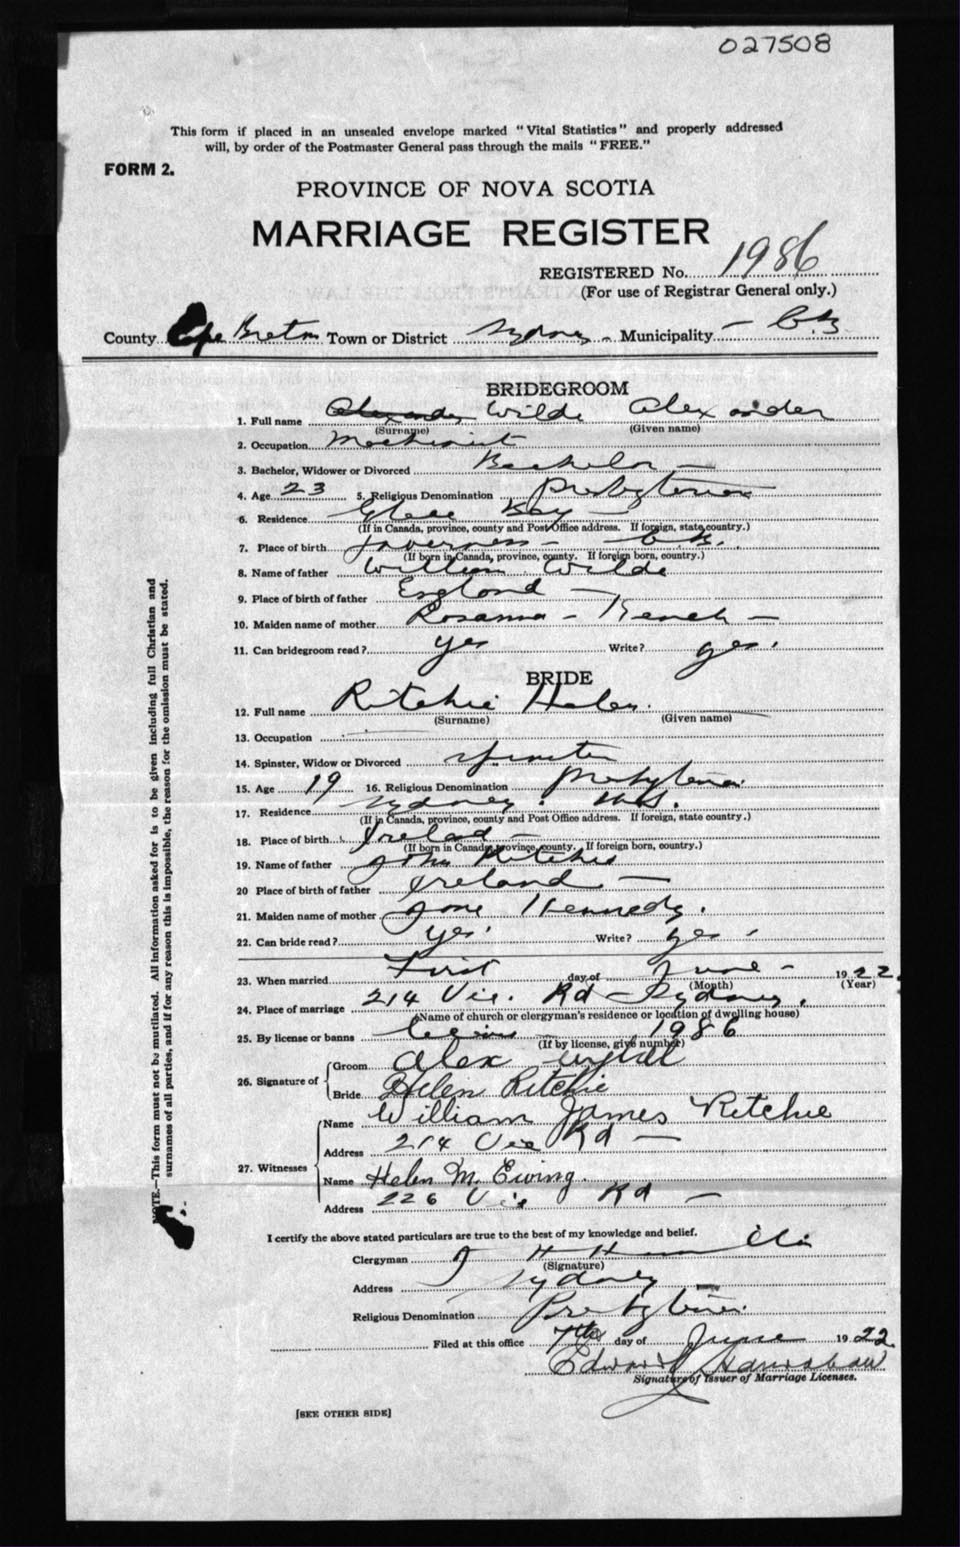 027508
This form if placed in an unsealed envelope marked "Vital Statistics" and properly addressed
will, by order of the Postmaster General pass through the mails "FREE."
FORM 2.
PROVINCE OF NOVA SCOTIA
MARRIAGE REGISTER
REGISTERED No. 1986
(For use of Registrar General only.)
County Cape Breton Town or District Sydney - Municipality - C.B.
BRIDEGROOM
1. Full name Alexander Wilde Alexander
(Surname) (Given name)
2. Occupation
3. Bachelor, Widower or Divorced Bachelor -
4. Age 23 5. Religious Denomination Presbyterian
6. Residence Glace Bay -
(If in Canada, province, county and Post Office address. If foreign, state country.)
7. Place of birth Inverness - C.B.
(If born in Canada, province, county. If foreign born, country.)
8. Name of father William Wilde
9. Place of birth of father England -
10. Maiden name of mother Rosanna -
11. Can bridegroom read? yes Write? yes.
BRIDE
12. Full name Ritchie Helen.
(Surname) (Given name)
13. Occupation
14. Spinster, Widow or Divorced Spinster
15. Age 19 16. Religious Denomination Presbyterian
17. Residence Sydney. N.S.
(If in Canada, province, county and Post Office address. If foreign, state country.)
18. Place of birth Ireland -
(If born in Canada, province, county. If foreign born, country.)
19. Name of father John Ritchie
20 Place of birth of father Ireland -
21. Maiden name of mother Jane Kennedy.
22. Can bride read? yes. Write? yes.
23. When married First day of June - 1922.
(Month) (Year)
24. Place of marriage 214 Vic. Rd - Sydney.
(Name of church or clergyman's residence or location of dwelling house)
25. By license or banns 1986
(If by license, give number)
26. Signature of Groom Alex
Bride Helen Ritchie
27. Witnesses Name William James Ritchie
Address 214 Vic Rd -
Name Helen M. Ewing.
Address 226 Vic Rd -
NOTE.—This form must not be mutilated. All information asked for is to be given including full Christian and
surnames of all parties, and if for any reason this is impossible, the reason for the omission must be stated.
I certify the above stated particulars are true to the best of my knowledge and belief.
Clergyman
(Signature)
Address Sydney
Religious Denomination Presbyterian
Filed at this office 7th day of June 1922.
Edward
Signature of Issuer of Marriage Licenses.
[SEE OTHER SIDE]